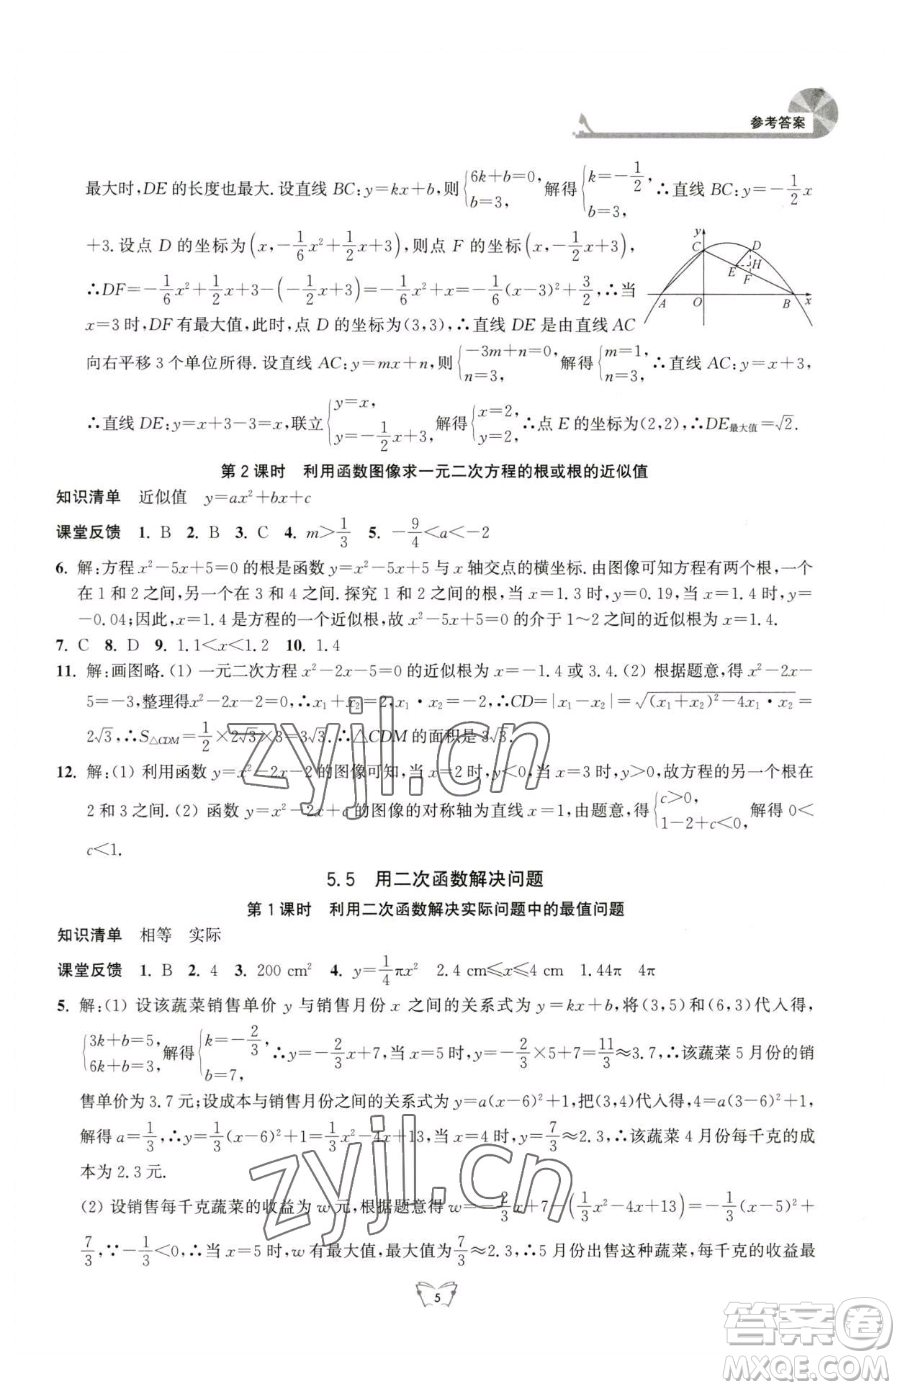 参考答案
最大时,DE 的长度也最大. 设直线 BC:y=kx+b,则{6k+b=0, b=3, 解得{k=-1/2, b=3, ∴直线 BC:y=-1/2x
+3. 设点 D 的坐标为(x,-1/6x²+1/2x+3),则点 F 的坐标为(x,-1/2x+3),
∴DF=-1/6x²+1/2x+3-(-1/2x+3)=-1/6x²+x=-1/6(x-3)²+3/2,∴当
x=3 时,DF 有最大值,此时,点 D 的坐标为(3,3),∴直线 DE 是由直线 AC
y C D E H F A O B x
向右平移 3 个单位所得. 设直线 AC:y=mx+n,则{-3m+n=0, n=3, 解得{m=1, n=3, ∴直线 AC:y=x+3,
∴直线 DE:y=x+3-3=x,联立{y=x, y=-1/2x+3, 解得{x=2, y=2, ∴点 E 的坐标为(2,2),∴DE最大值=√2.
第 2 课时 利用函数图像求一元二次方程的根或根的近似值
知识清单 近似值 y=ax²+bx+c
课堂反馈 1. B 2. B 3. C 4. m>1/3 5. -9/4<a<-2
6. 解:方程 x²-5x+5=0 的根是函数 y=x²-5x+5 与 x 轴交点的横坐标. 由图像可知方程有两个根,一个
在 1 和 2 之间,另一个在 3 和 4 之间. 探究 1 和 2 之间的根,当 x=1.3 时,y=0.19,当 x=1.4 时,y=
-0.04;因此,x=1.4 是方程的一个近似根,故 x²-5x+5=0 的介于 1~2 之间的根为 x=1.4.
7. C 8. D 9. 1.1<x<1.2 10. 1.4
11. 解:画图略.(1) 一元二次方程 x²-2x-5=0 的近似根为 x=-1.4 或 3.4.(2) 根据题意,得 x²-2x-
5=-3,整理得x²-2x-2=0,∴x₁+x₂=2,x₁·x₂=-2,∴CD=|x₁-x₂|=√((x₁+x₂)²-4x₁·x₂)=
2√3.∴S△CDM=1/2×2√3×3=3√3.∴△CDM 的面积是 3√3.
12. 解:(1) 利用函数 y=x²-2x-2 的图像可知,当 x=2 时,y<0,当 x=3 时,y>0,故方程的另一个根在
2 和 3 之间.(2) 函数 y=x²-2x+c 的图像的对称轴为直线 x=1,由题意,得{c>0, 1-2+c<0, 解得 0<
c<1.
5.5 用二次函数解决问题
第 1 课时 利用二次函数解决实际问题中的最值问题
知识清单 相等 实际
课堂反馈 1. B 2. 4 3. 200 cm² 4. y=1/4πx² 2.4 cm≤x≤4 cm 1.44π 4π
5. 解:(1) 设该蔬菜销售单价 y 与销售月份 x 之间的关系式为 y=kx+b,将(3,5)和(6,3)代入得,
{3k+b=5, 6k+b=3, 解得{k=-2/3, b=7, ∴y=-2/3x+7,当 x=5 时,y=-2/3×5+7=11/3≈3.7,∴该蔬菜 5 月份的销
售单价为 3.7 元;设成本与销售月份之间的关系式为 y=a(x-6)²+1,把(3,4)代入得,4=a(3-6)²+1,
解得 a=1/3,∴y=1/3(x-6)²+1=1/3x²-4x+13,当 x=4 时,y=7/3≈2.3,∴该蔬菜 4 月份每千克的成
本为 2.3 元.
(2) 设销售每千克蔬菜的收益为 w 元,根据题意得 w=-2/3x+7-(1/3x²-4x+13)=-1/3(x-5)²+
7/3,∵-1/3<0,∴当 x=5 时,w 有最大值,最大值为7/3≈2.3,∴5 月份出售这种蔬菜,每千克的收益最
5
zyjl.cn
zyjl.cn
答案圈
MXQE.COM